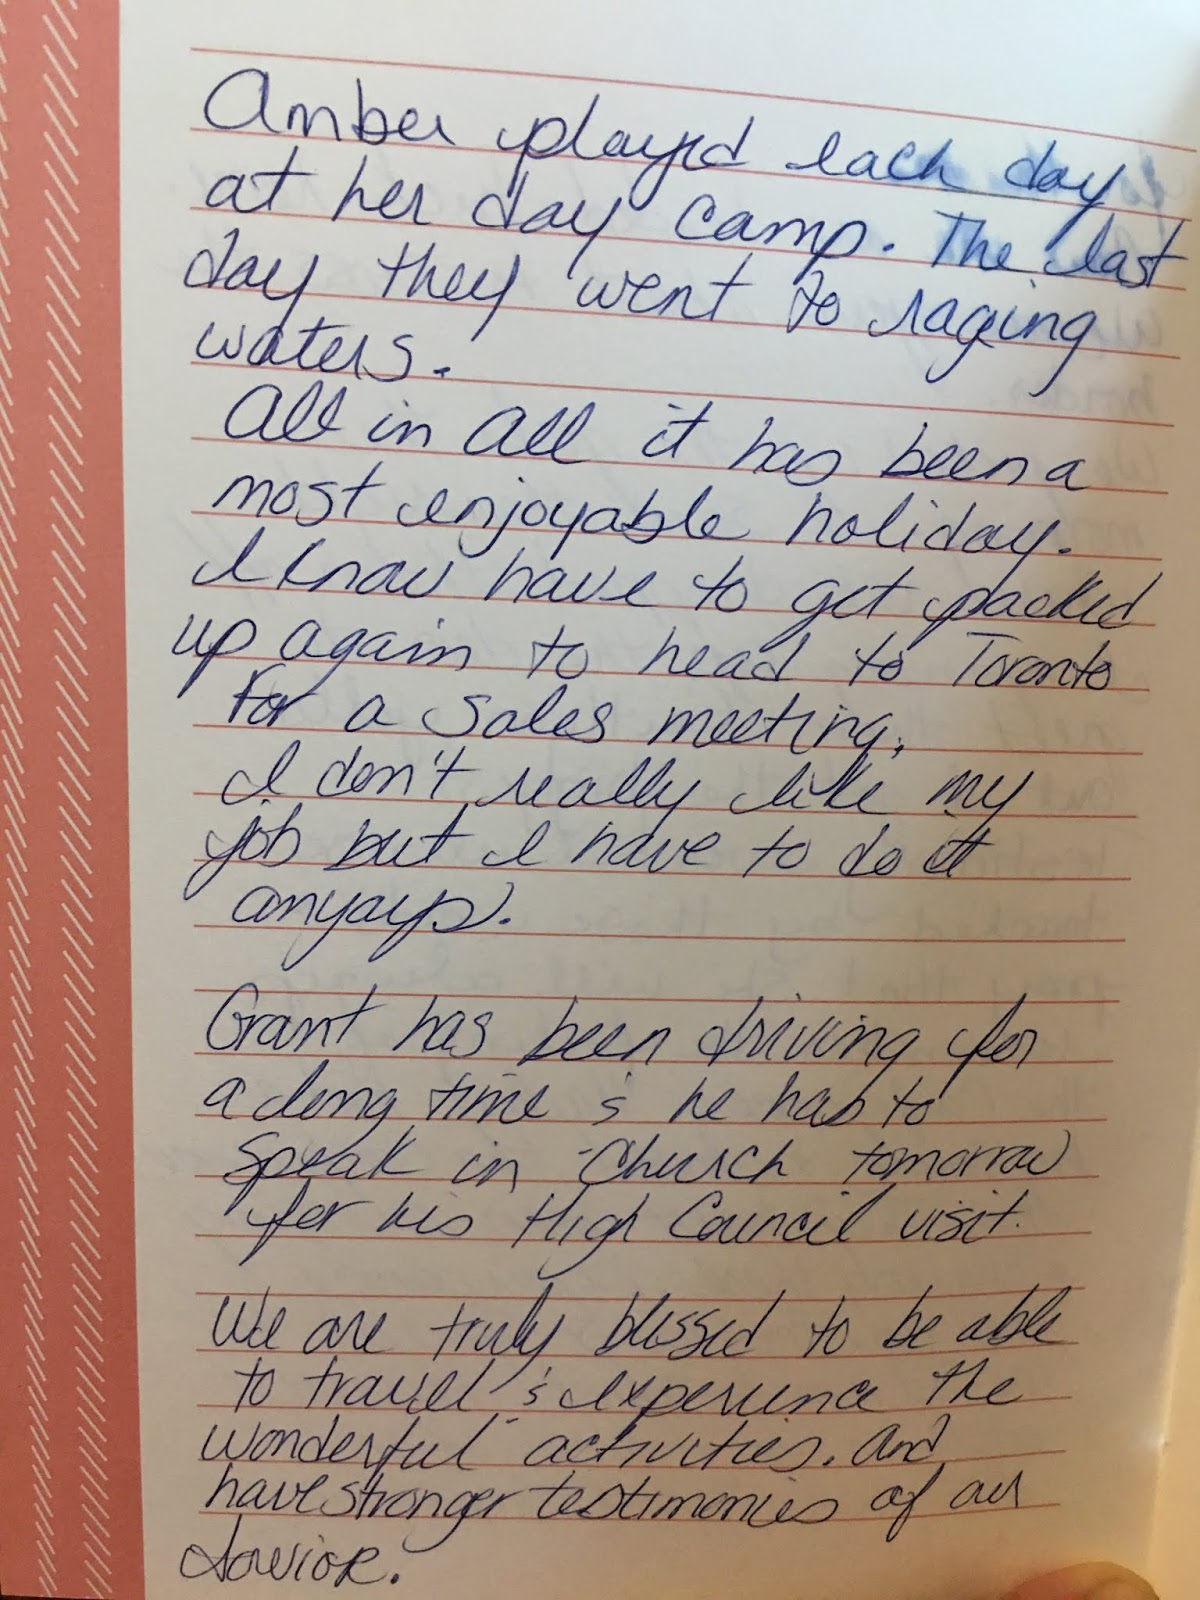 Amber played each day
at her day camp. The last
day they went to raging
waters.
All in all it has been a
most enjoyable holiday.
I know have to get packed
up again to head to Toronto
for a sales meeting,
I don't really like my
job but I have to do it
anyays.
Grant has been driving for
a long time & he has to
speak in Church tomorrow
for his High Council visit.
We are truly blessed to be able
to travel & experience the
wonderful activities. And
have stronger testimonies of our
Savior.